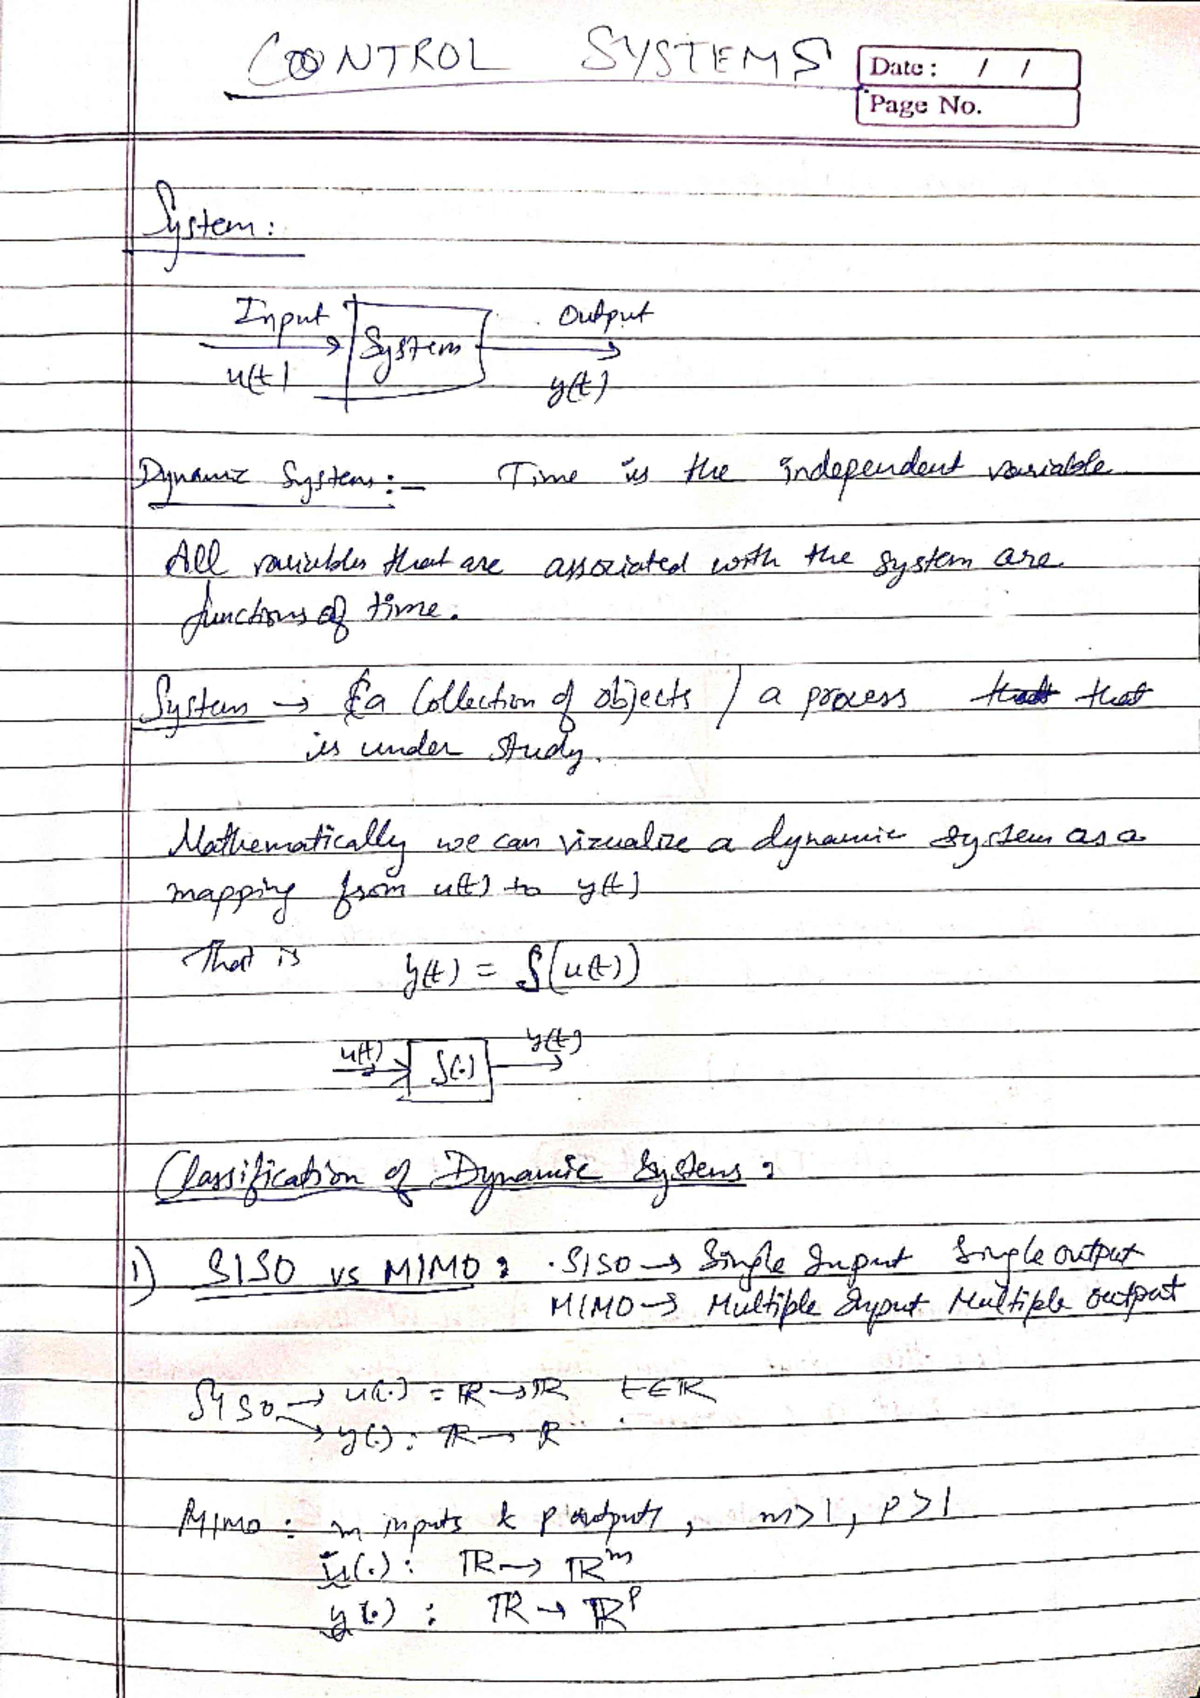 CONTROL SYSTEMS
Date : / /
Page No.
System :
Input
Output
System
u(t)
y(t)
Dynamic System :- Time is the independent variable
All variables that are associated with the system are
functions of time.
System → a Collection of objects / a process that
is under study.
Mathematically we can vizualize a dynamic system as a
mapping from u(t) to y(t)
That is y(t) = S(u(t))
u(t) S(.) y(t)
Classification of Dynamic Systems :
1) SISO vs MIMO : . SISO → Single Input Single output
MIMO → Multiple Input Multiple output
SISO → u(.) = ℝ → ℝ t ∈ ℝ
→ y(.) : ℝ → ℝ
MIMO : m inputs & p outputs, m>1, p>1
u(.) : ℝ → ℝᵐ
y(.) : ℝ → ℝᵖ